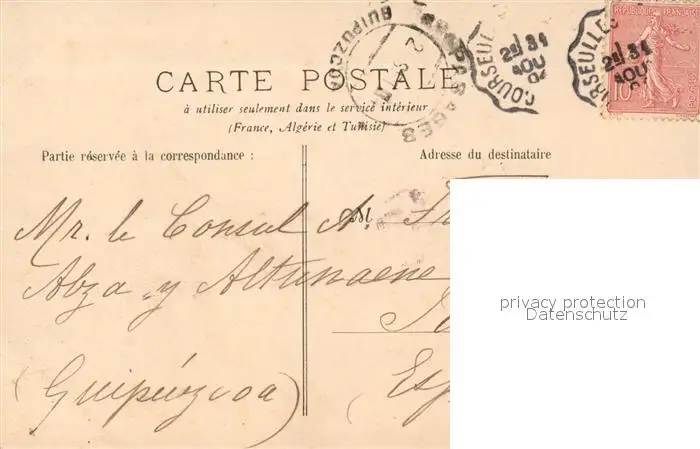 GUIPUZCOA
PASAGES
COURSEULLES
2E 31
AOU
04
COURSEULLES
2E 31
AOU
REPUBLIQUE FRANÇAISE
10
CARTE POSTALE
à utiliser seulement dans le service intérieur
(France, Algérie et Tunisie)
Partie réservée à la correspondance :
Adresse du destinataire
M.
Mr. le Consul A.
Abza y Altunaene
(Guipúzcoa)
Esp
privacy protection
Datenschutz